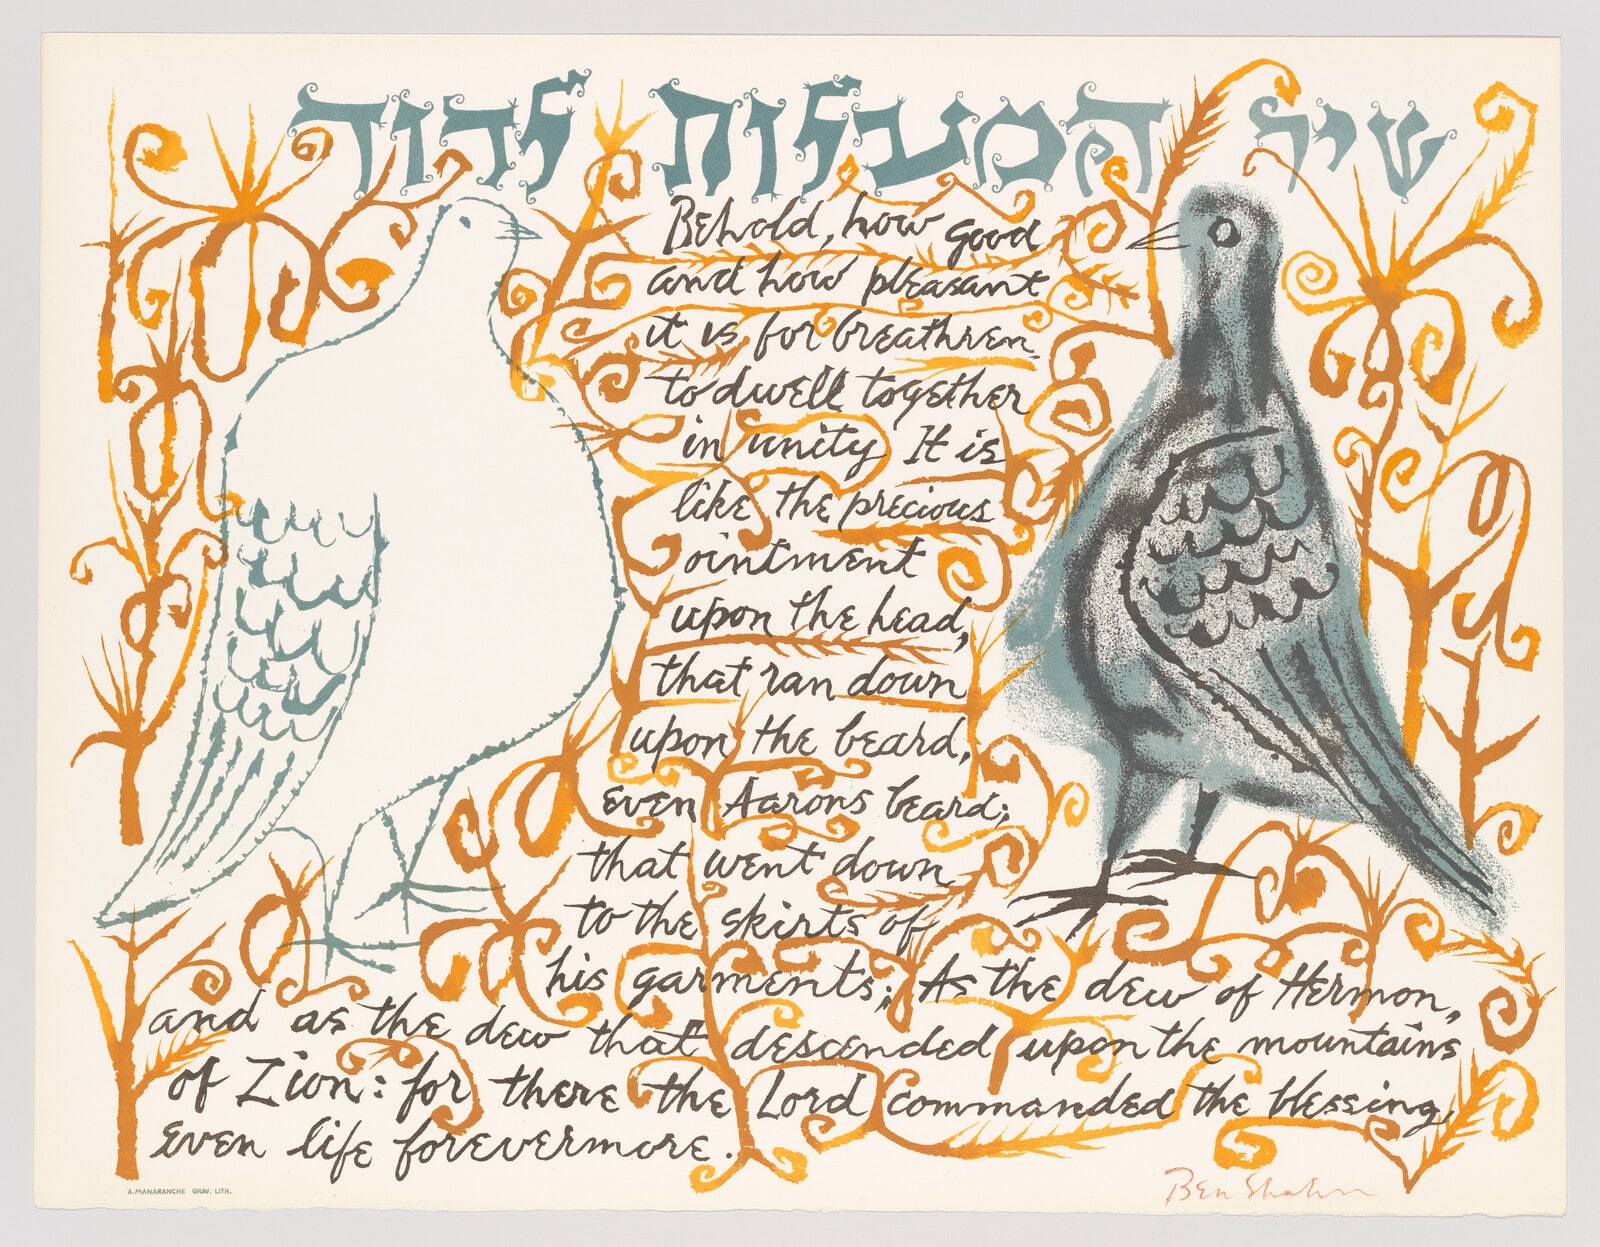 שיר המעלות לדוד
Behold, how good
and how pleasant
it is for breathren
to dwell together
in unity It is
like the precious
ointment
upon the head,
that ran down
upon the beard,
even Aarons beard;
that went down
to the skirts of
his garments; As the dew of Hermon,
and as the dew that descended upon the mountains
of Zion: for there the Lord commanded the blessing,
even life forevermore.
A.MANARANCHE GRAV. LITH.
Ben Shahn